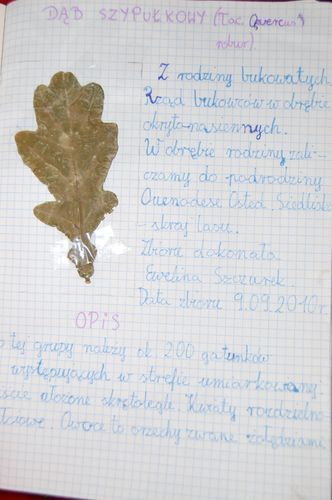 DĄB SZYPUŁKOWY (łac. Quercus
robur).
Z rodziny bukowatych
Rząd bukowców w obrębie
okrytonasiennych.
W obrębie rodziny zali-
czamy do podrodziny
Quenodese Osted. Siedlisk
- skraj lasu.
Zbioru dokonała
Ewelina Szczurek.
Data zbioru 9.09.2010r.
OPIS
tej grupy należy ok 200 gatunków
występujących w strefie umiarkowanej.
ułożone skrętolegle. Kwiaty rozdzielno
Owoce to orzechy zwane żołędziami